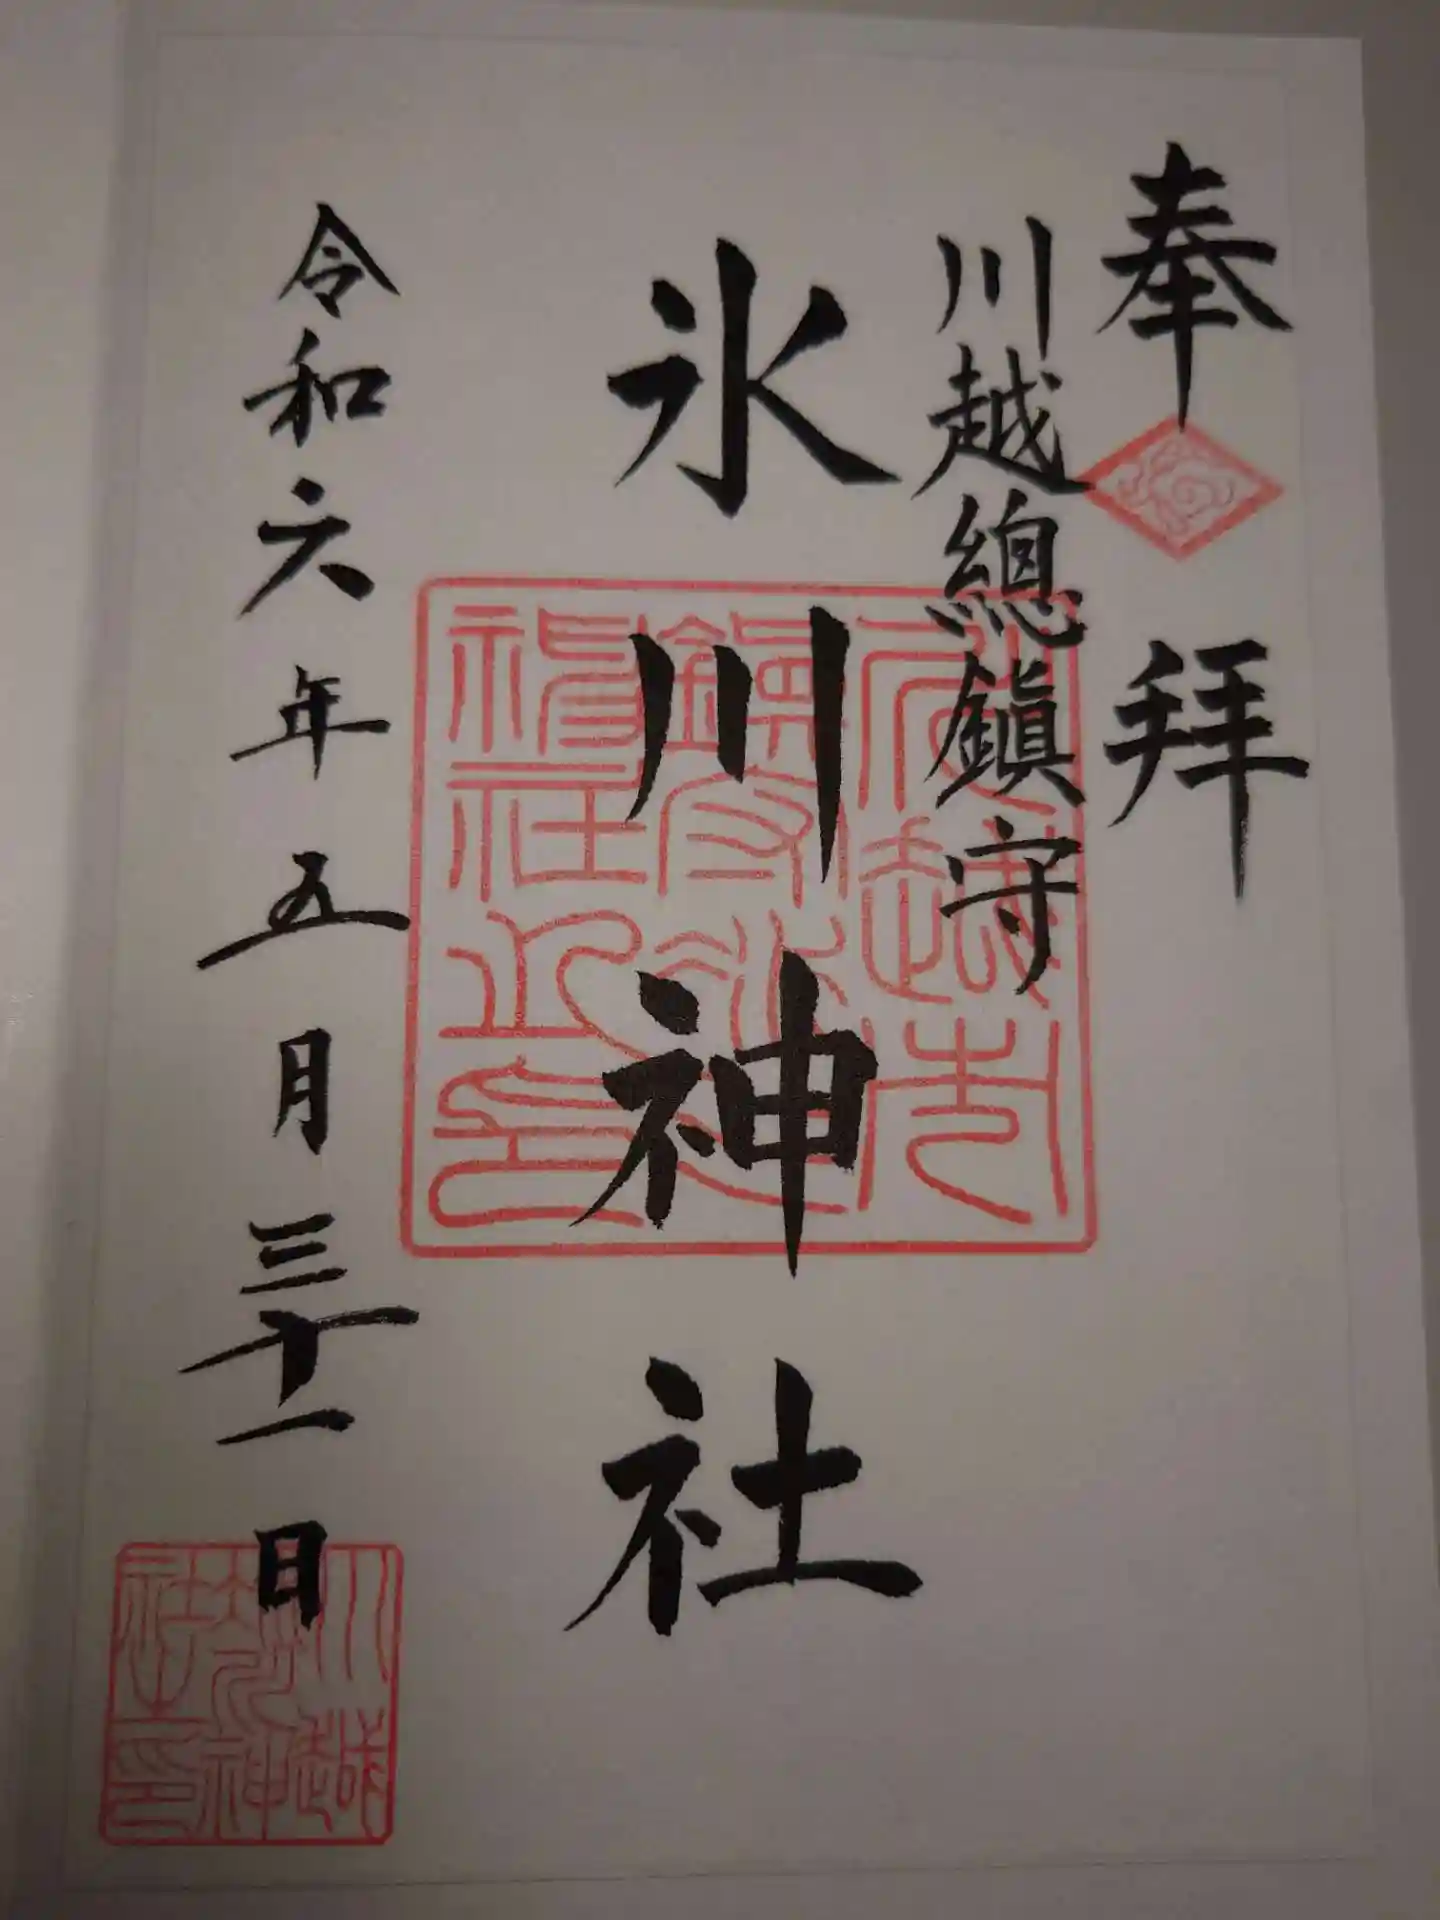 奉拝
川越總鎭守
氷川神社
令和六年五月三十一日